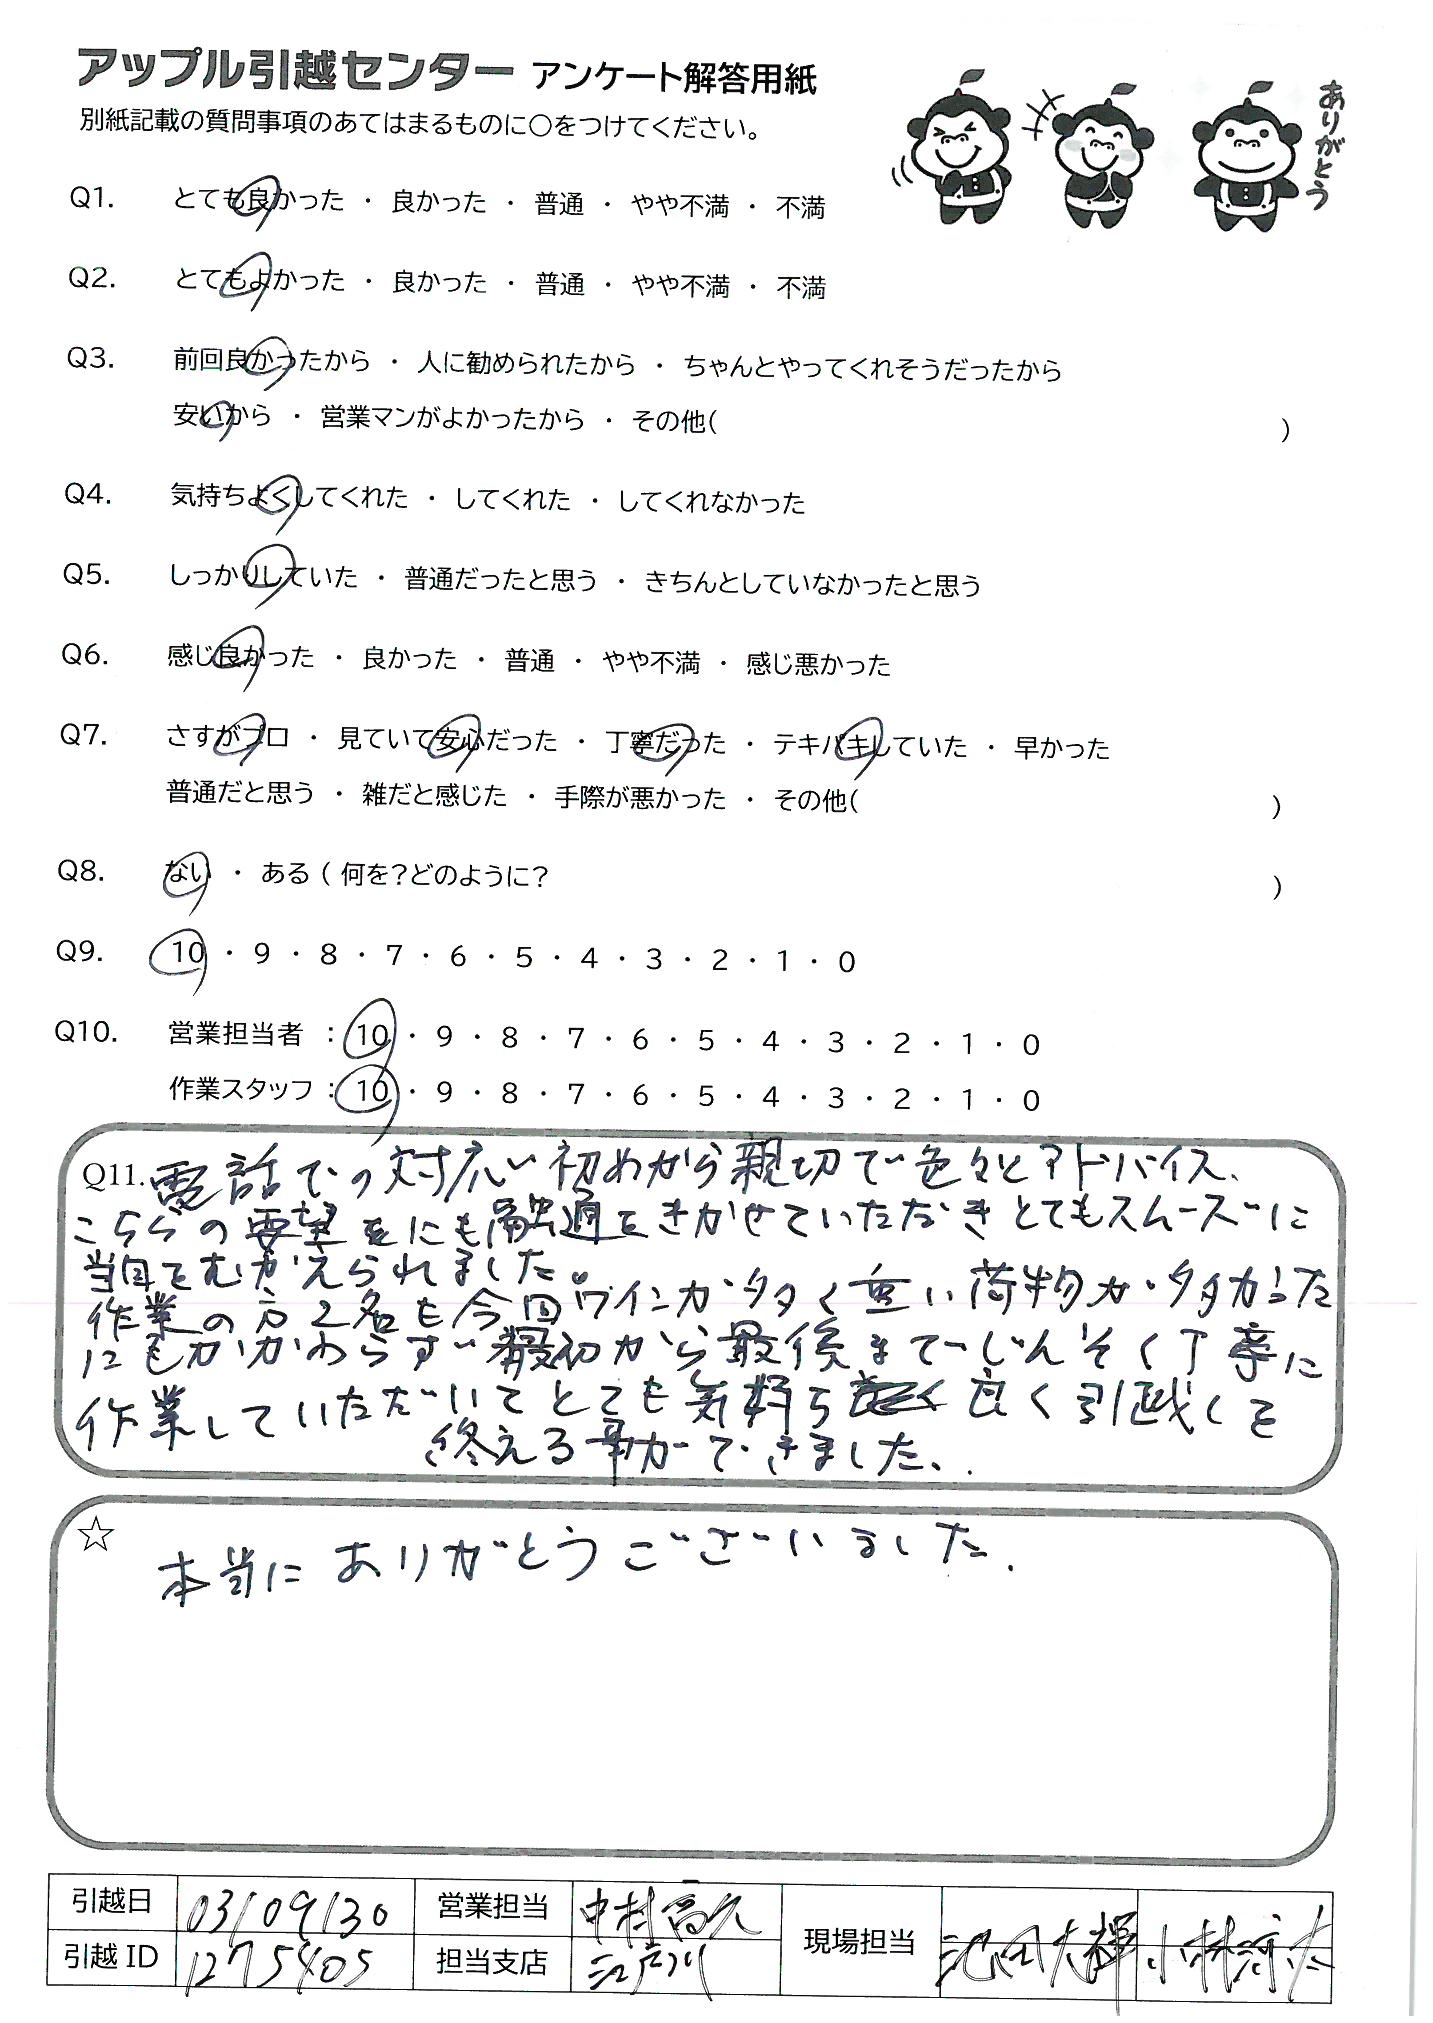 アップル引越センター アンケート解答用紙
別紙記載の質問事項のあてはまるものに○をつけてください。
ありがとう
Q1. とても良かった ・ 良かった ・ 普通 ・ やや不満 ・ 不満
Q2. とてもよかった ・ 良かった ・ 普通 ・ やや不満 ・ 不満
Q3. 前回良かったから ・ 人に勧められたから ・ ちゃんとやってくれそうだったから
安いから ・ 営業マンがよかったから ・ その他( )
Q4. 気持ちよくしてくれた ・ してくれた ・ してくれなかった
Q5. しっかりしていた ・ 普通だったと思う ・ きちんとしていなかったと思う
Q6. 感じ良かった ・ 良かった ・ 普通 ・ やや不満 ・ 感じ悪かった
Q7. さすがプロ ・ 見ていて安心だった ・ 丁寧だった ・ テキパキしていた ・ 早かった
普通だと思う ・ 雑だと感じた ・ 手際が悪かった ・ その他( )
Q8. ない ・ ある ( 何を?どのように? )
Q9. 10 ・ 9 ・ 8 ・ 7 ・ 6 ・ 5 ・ 4 ・ 3 ・ 2 ・ 1 ・ 0
Q10. 営業担当者 : 10 ・ 9 ・ 8 ・ 7 ・ 6 ・ 5 ・ 4 ・ 3 ・ 2 ・ 1 ・ 0
作業スタッフ : 10 ・ 9 ・ 8 ・ 7 ・ 6 ・ 5 ・ 4 ・ 3 ・ 2 ・ 1 ・ 0
Q11. 電話での対応い初めから親切で色々とアドバイス、
こちらの要望をにも融通をきかせていただきとてもスムーズに
当日をむかえられました。
作業の方2名も今回ワインが多く重い荷物が多かった
にもかかわらず最初から最後までじんそく丁寧に
作業していただいてとても気持ち良く引越しを
終える事ができました。
☆ 本当にありがとうございました.
引越日 03/09/30 営業担当 中村高久 現場担当 池田大輝 小林
引越ID 1275405 担当支店 江戸川